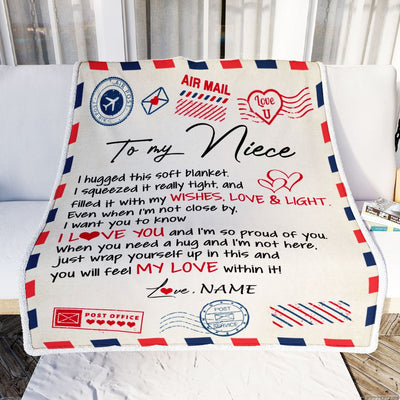 AIR MAIL
Love U
To my Niece
I hugged this soft blanket.
I squeezed it really tight, and
filled it with my WISHES, LOVE & LIGHT.
Even when I'm not close by.
I want you to know
I L❤VE YOU and I'm so proud of you.
When you need a hug and I'm not here,
just wrap yourself up in this and
you will feel MY LOVE within it!
Love, NAME
POST OFFICE